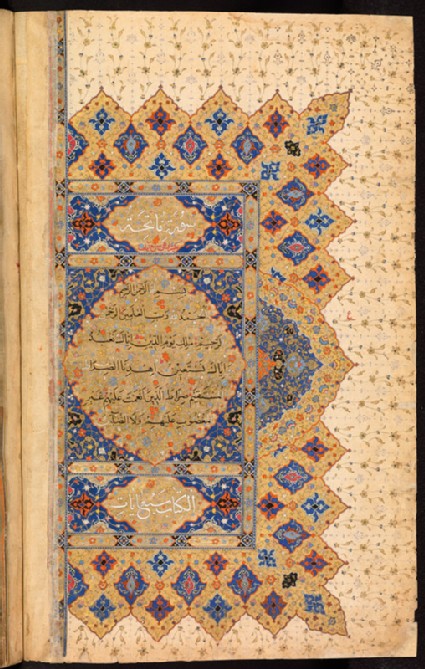 سورة فاتحة
بسم الله الرحمن الرحيم
الحمد لله رب العالمين الرحمن
الرحيم ملك يوم الدين اياك نعبد
واياك نستعين اهدنا الصراط
المستقيم صراط الذين انعمت عليهم غير
المغضوب عليهم ولا الضالين
الكتاب سبع ايات